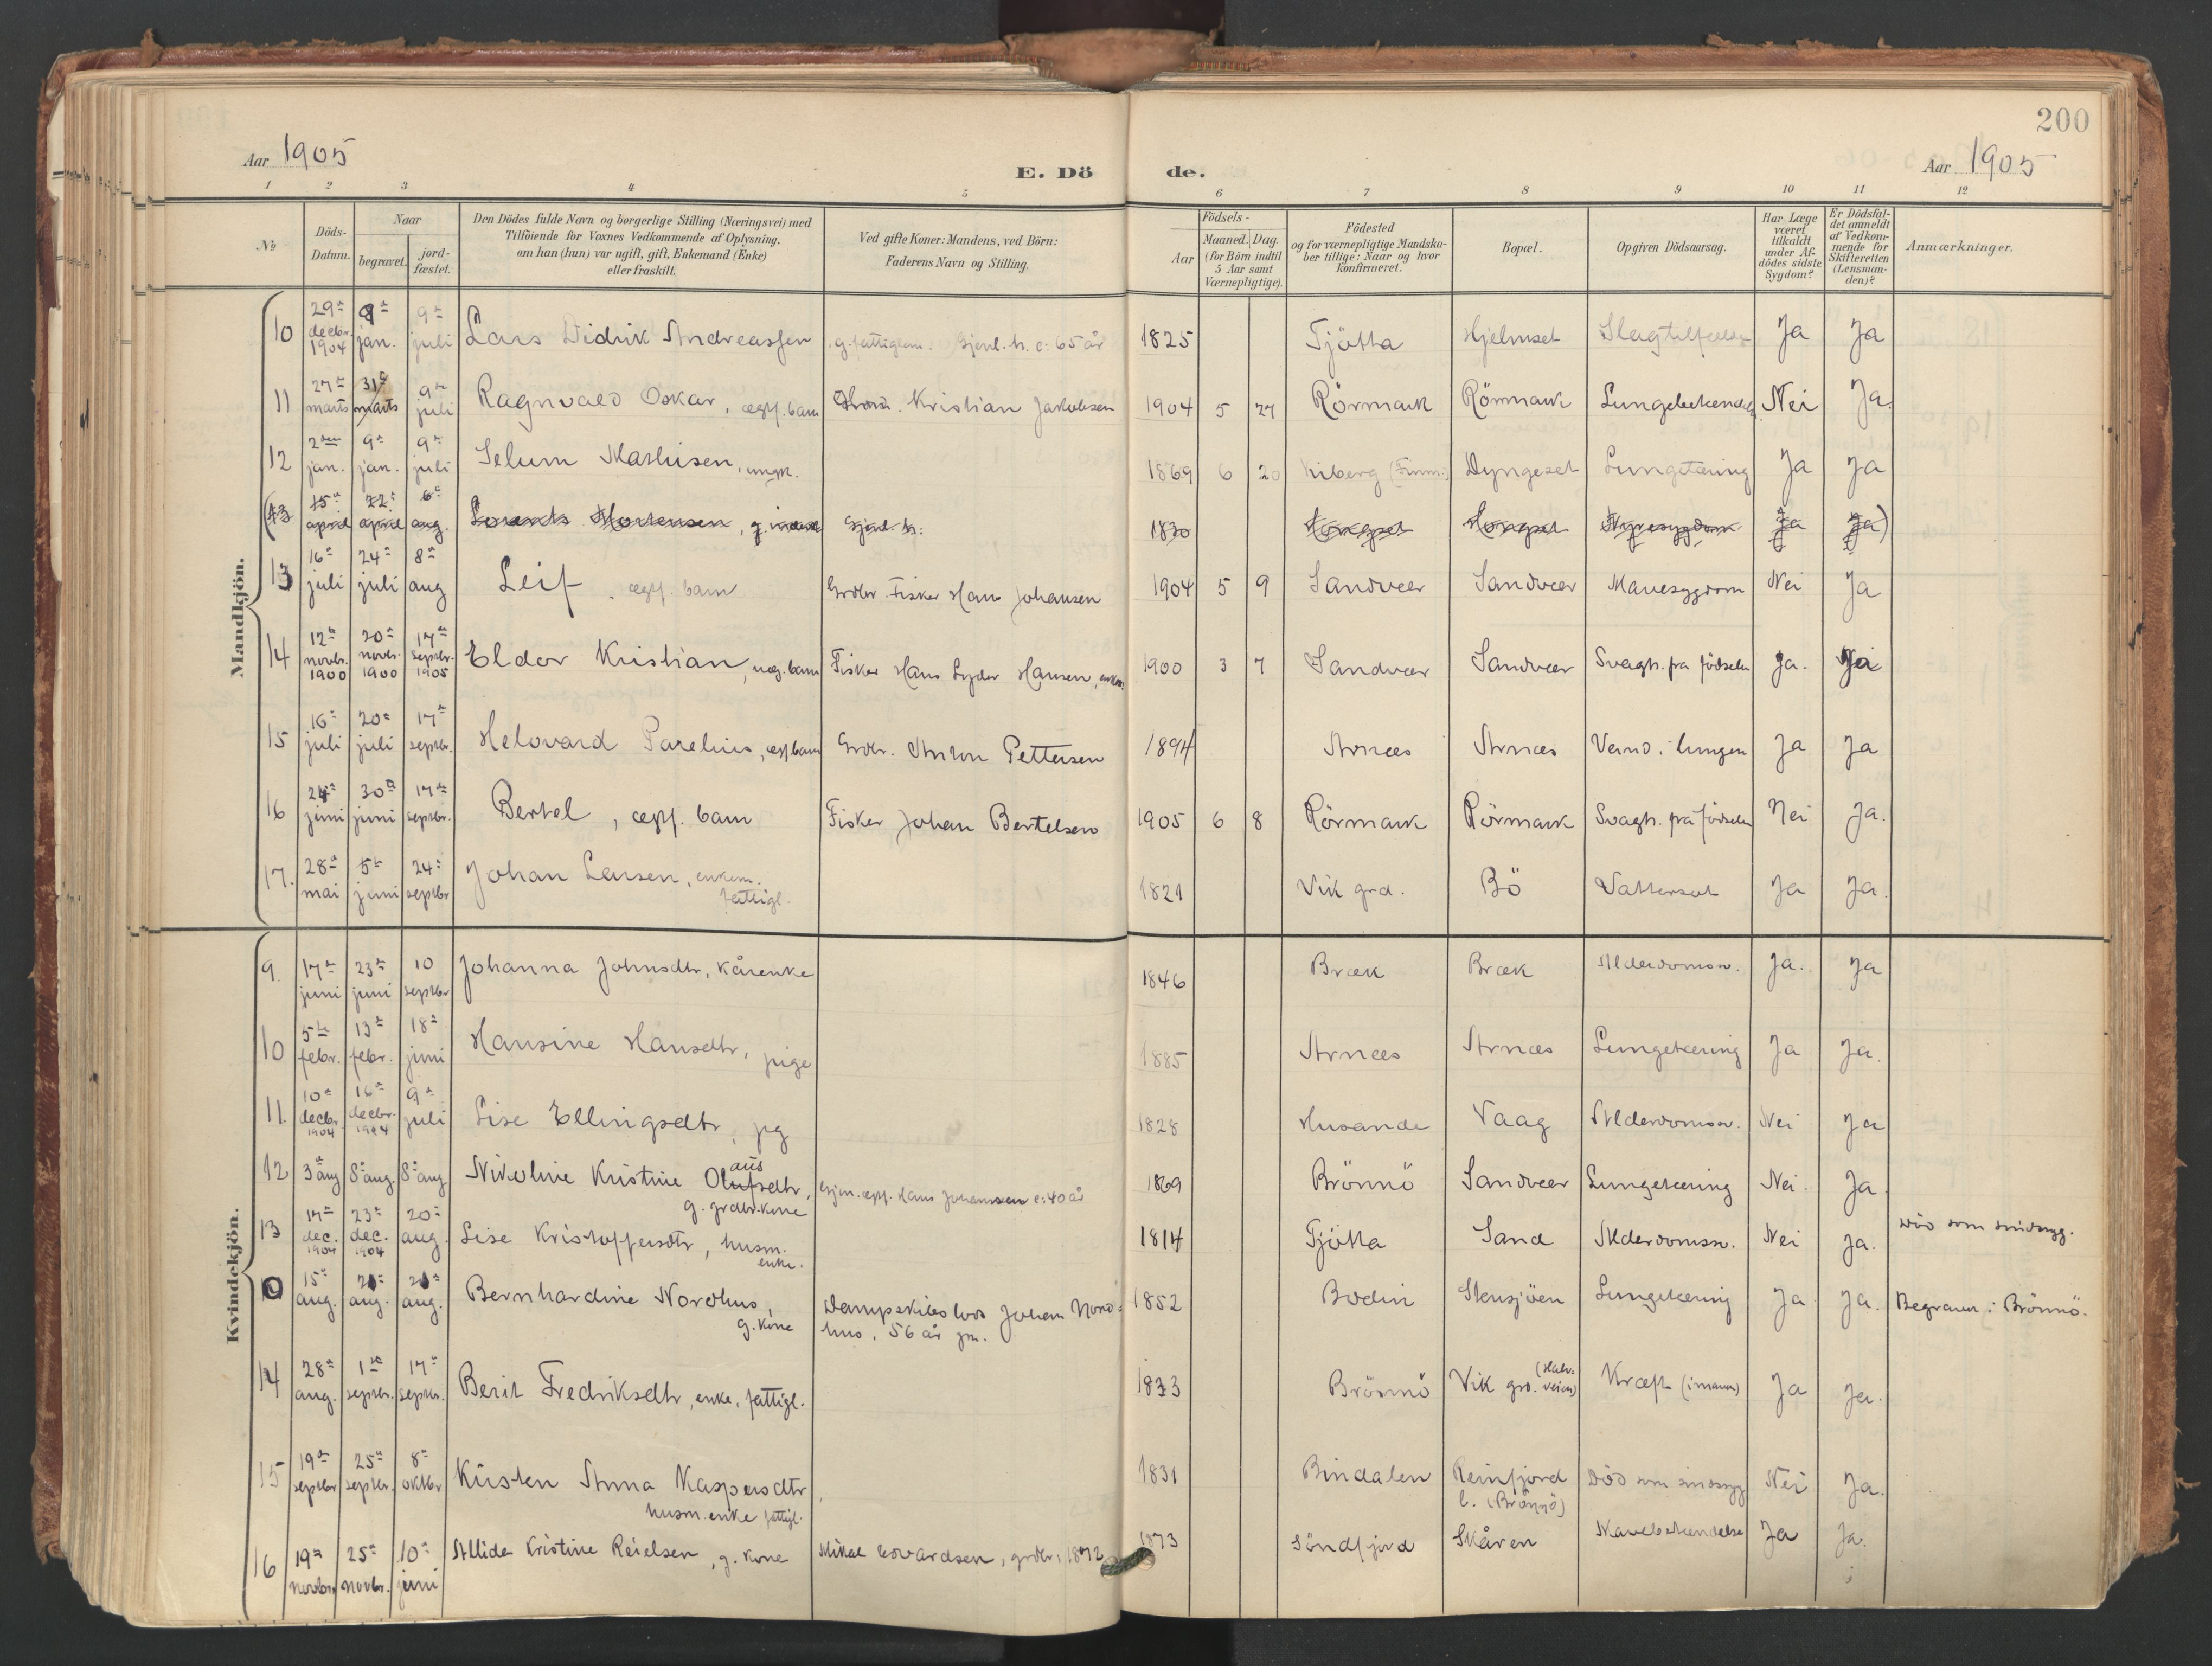 200
Aar 1905
E. Dö
de.
Aar 1905
1 2 3 4 5 6 7 8 9 10 11 12
No.
Döds-Datum.
Naar
begravet.
jord-fæstet.
Den Dödes fulde Navn og borgerlige Stilling (Næringsvei) med
Tilföiende for Voxnes Vedkommende af Oplysning,
om han (hun) var ugift, gift, Enkemand (Enke)
eller fraskilt.
Ved gifte Koner: Mandens, ved Börn:
Faderens Navn og Stilling.
Födsels-
Aar
Maaned. Dag.
(for Börn indtil
5 Aar samt
Værnepligtige).
Födested
og for værnepligtige Mandska-
ber tillige: Naar og hvor
konfirmeret.
Bopæl.
Opgiven Dödsaarsag.
Har Læge
været
tilkaldt
under Af-
dödes sidste
Sygdom?
Er Dödsfal-
det anmeldt
af Vedkom-
mende for
Skifteretten
(Lensman-
den)?
Anmærkninger.
Mandkjön.
10 29de decbr. 1904 8de jan. 9de juli Lars Didrik Andreassen g. fattiglem. Gjenl. h. c: 65 år 1825 Tjötta Hjelmset Slagtilfælde Ja Ja
11 27de marts 31te marts 9de juli Ragnvald Oskar, ægtf. barn Kristian Jakobsen 1904 5 27 Rörmark Rörmark Lungebetændelse Nei Ja.
12 2den jan. 9de jan. 9de juli Selum Mathisen, ungk. 1869 6 20 Kiberg (Finm.) Dyngeset Lungetæring Ja Ja
(13 15de april 22de april 6te aug. Lorents Mortensen, g. Gjenl. h: 1830 Horsgset Nyresygdom Ja Ja)
13 16de juli 24de juli 8de aug Leif, ægtf. barn Grdbr. Fisker Hans Johansen 1904 5 9 Sandvær Sandvær Mavesygdom Nei Ja
14 12te novbr. 1900 20de novbr. 1900 17de septbr. 1905 Eldor Kristian, ueg. barn Fisker Hans Lyder Hansen, 1900 3 7 Sandvær Sandvær Svagh. fra födselen Ja. Ja
15 16de juli 20de juli 17de septbr. Helovard Parelius, egf barn Grdbr. Anton Pettersen 1894 Arnæs Arnæs Vand i lungen Ja Ja
16 24de juni 30te juni 17de septbr. Bertel, ægtf. barn Fisker Johan Bertelsen 1905 6 8 Rörmark Rörmark Svagh. fra födselen Nei Ja.
17. 28de mai 5te juni 24de septbr Johan Larsen, enkem. fattigl. 1821 Vik grd. Bö Vattersot Ja Ja.
Kvindekjön.
9. 17de juni 23de juni 10 septbr Johanna Johnsdtr, kårenke 1846 Bræk Bræk Alderdomssv. Ja. Ja
10 5te febr. 13de febr. 18de juni Hansine Hansdtr, pige 1885 Arnæs Arnæs Lungetæring Ja Ja.
11. 10de decbr. 1904 16de decbr. 1904 9de juli Lise Ellingsdtr, pg 1828 Husande Vaag Alderdomssv. Nei Ja
12 3de aug 8de aug. 8de aug Nikoline Kristine Olufsdtr, g. grdbr.kone Gjen. egtf. Hans Johansen c: 40 år 1869 Brönnö Sandvær Lungetæring Nei. Ja
13 17de dec. 1904 23de dec. 1904 20de aug. Lise Kristoffersdtr, husm. enke. 1814 Tjötta Sand Alderdomssv. Nei Ja. Död som sindssyg.
0 15de aug. 21de aug. 21de aug. Bernhardine Nordhus, g. kone Dampskibslods Johan Nord-
hus, 56 år gm. 1852 Bodin Stensjöen Lungetæring Ja Ja. Begraven i Brönnö.
14 28de aug. 1ste septbr. 17de septbr. Berit Fredriksdtr, enke, fattigl. 1833 Brönnö Vik grd. (Halv-veien) Kræft (i maven) Ja Ja.
15 19de septbr 25de septbr. 8de oktbr Kirsten Anna Kaspersdtr husm.enke fattigl. 1831 Bindalen Reinfjord l. (Brönnö) Död som sindssyg Nei Ja.
16 19de novbr. 25de novbr. 10de juni Allida Kristine Reielsen, g. kone Mikal Edvardsen, grdbr, 1872 1873 Söndfjord Skåren Mavebetændelse Ja Ja.